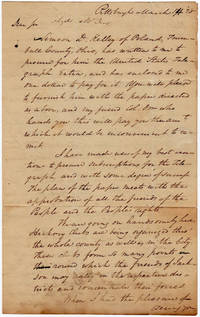 Pittsburgh March
Dear Sir
Simeon D. Kelley of Poland, Trum-
bull County, Ohio, has written to me to
procure for him the United States Tele-
graph extra, and has enclosed to me
one dollar to pay for it. You will please
to furnish him with the paper directed
as above, and my friend who
hands you this will pay you the amount
which it would be inconvenient to re-
mit.
I have made use of my best exer-
tions to procure subscriptions for the Tele-
graph and with some degree of success
The plan of the paper meets with the
approbation of all the friends of the
People and the People's rights.
We are going on handsomely here
Hickory Clubs are being organized thro'
the whole county as well as in the City.
these clubs form so many points
around which the friends of Jack-
son may rally in the respective dis-
tricts and concentrate their forces
When I had the pleasure of
seeing you